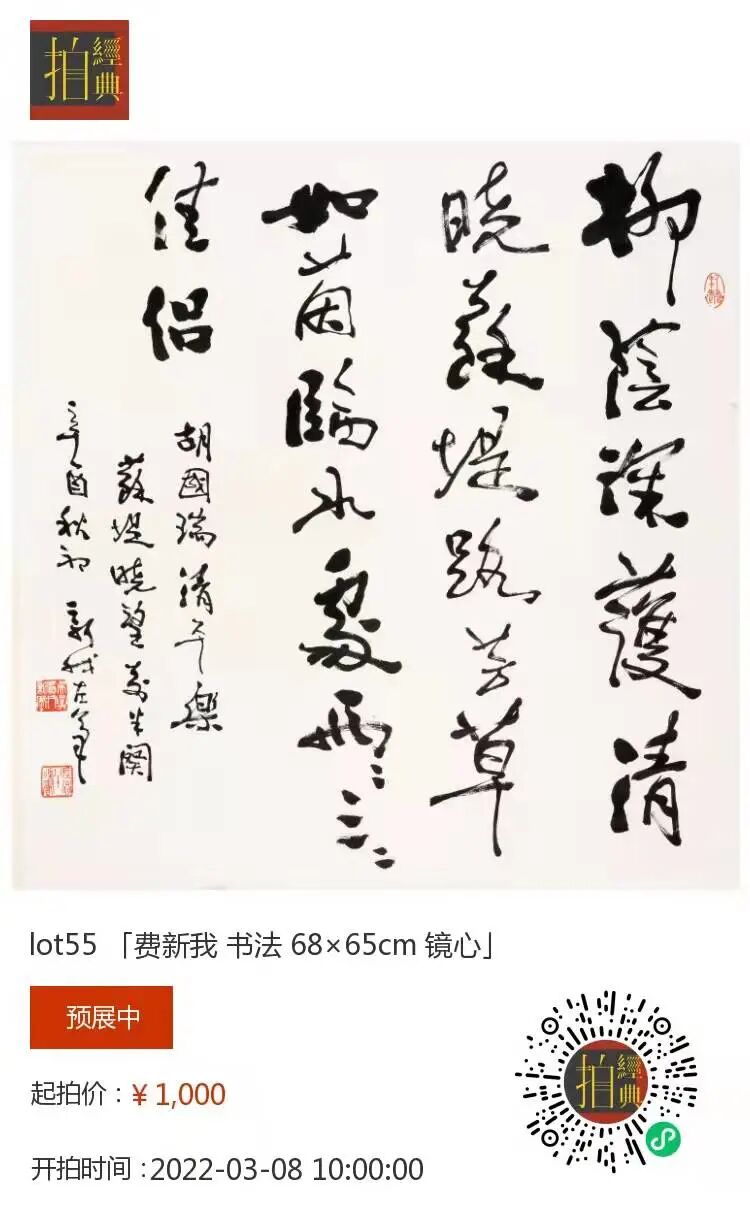 拍經典
柳蔭深護清
晓蘇堤路芳草
如茵臨水處两〻三〻
佳侣
胡國瑞清平樂
蘇堤晓望前半阕
辛酉秋初 新我左笔
lot55 「费新我 书法 68×65cm 镜心」
预展中
起拍价：¥ 1,000
开拍时间：2022-03-08 10:00:00
拍經典